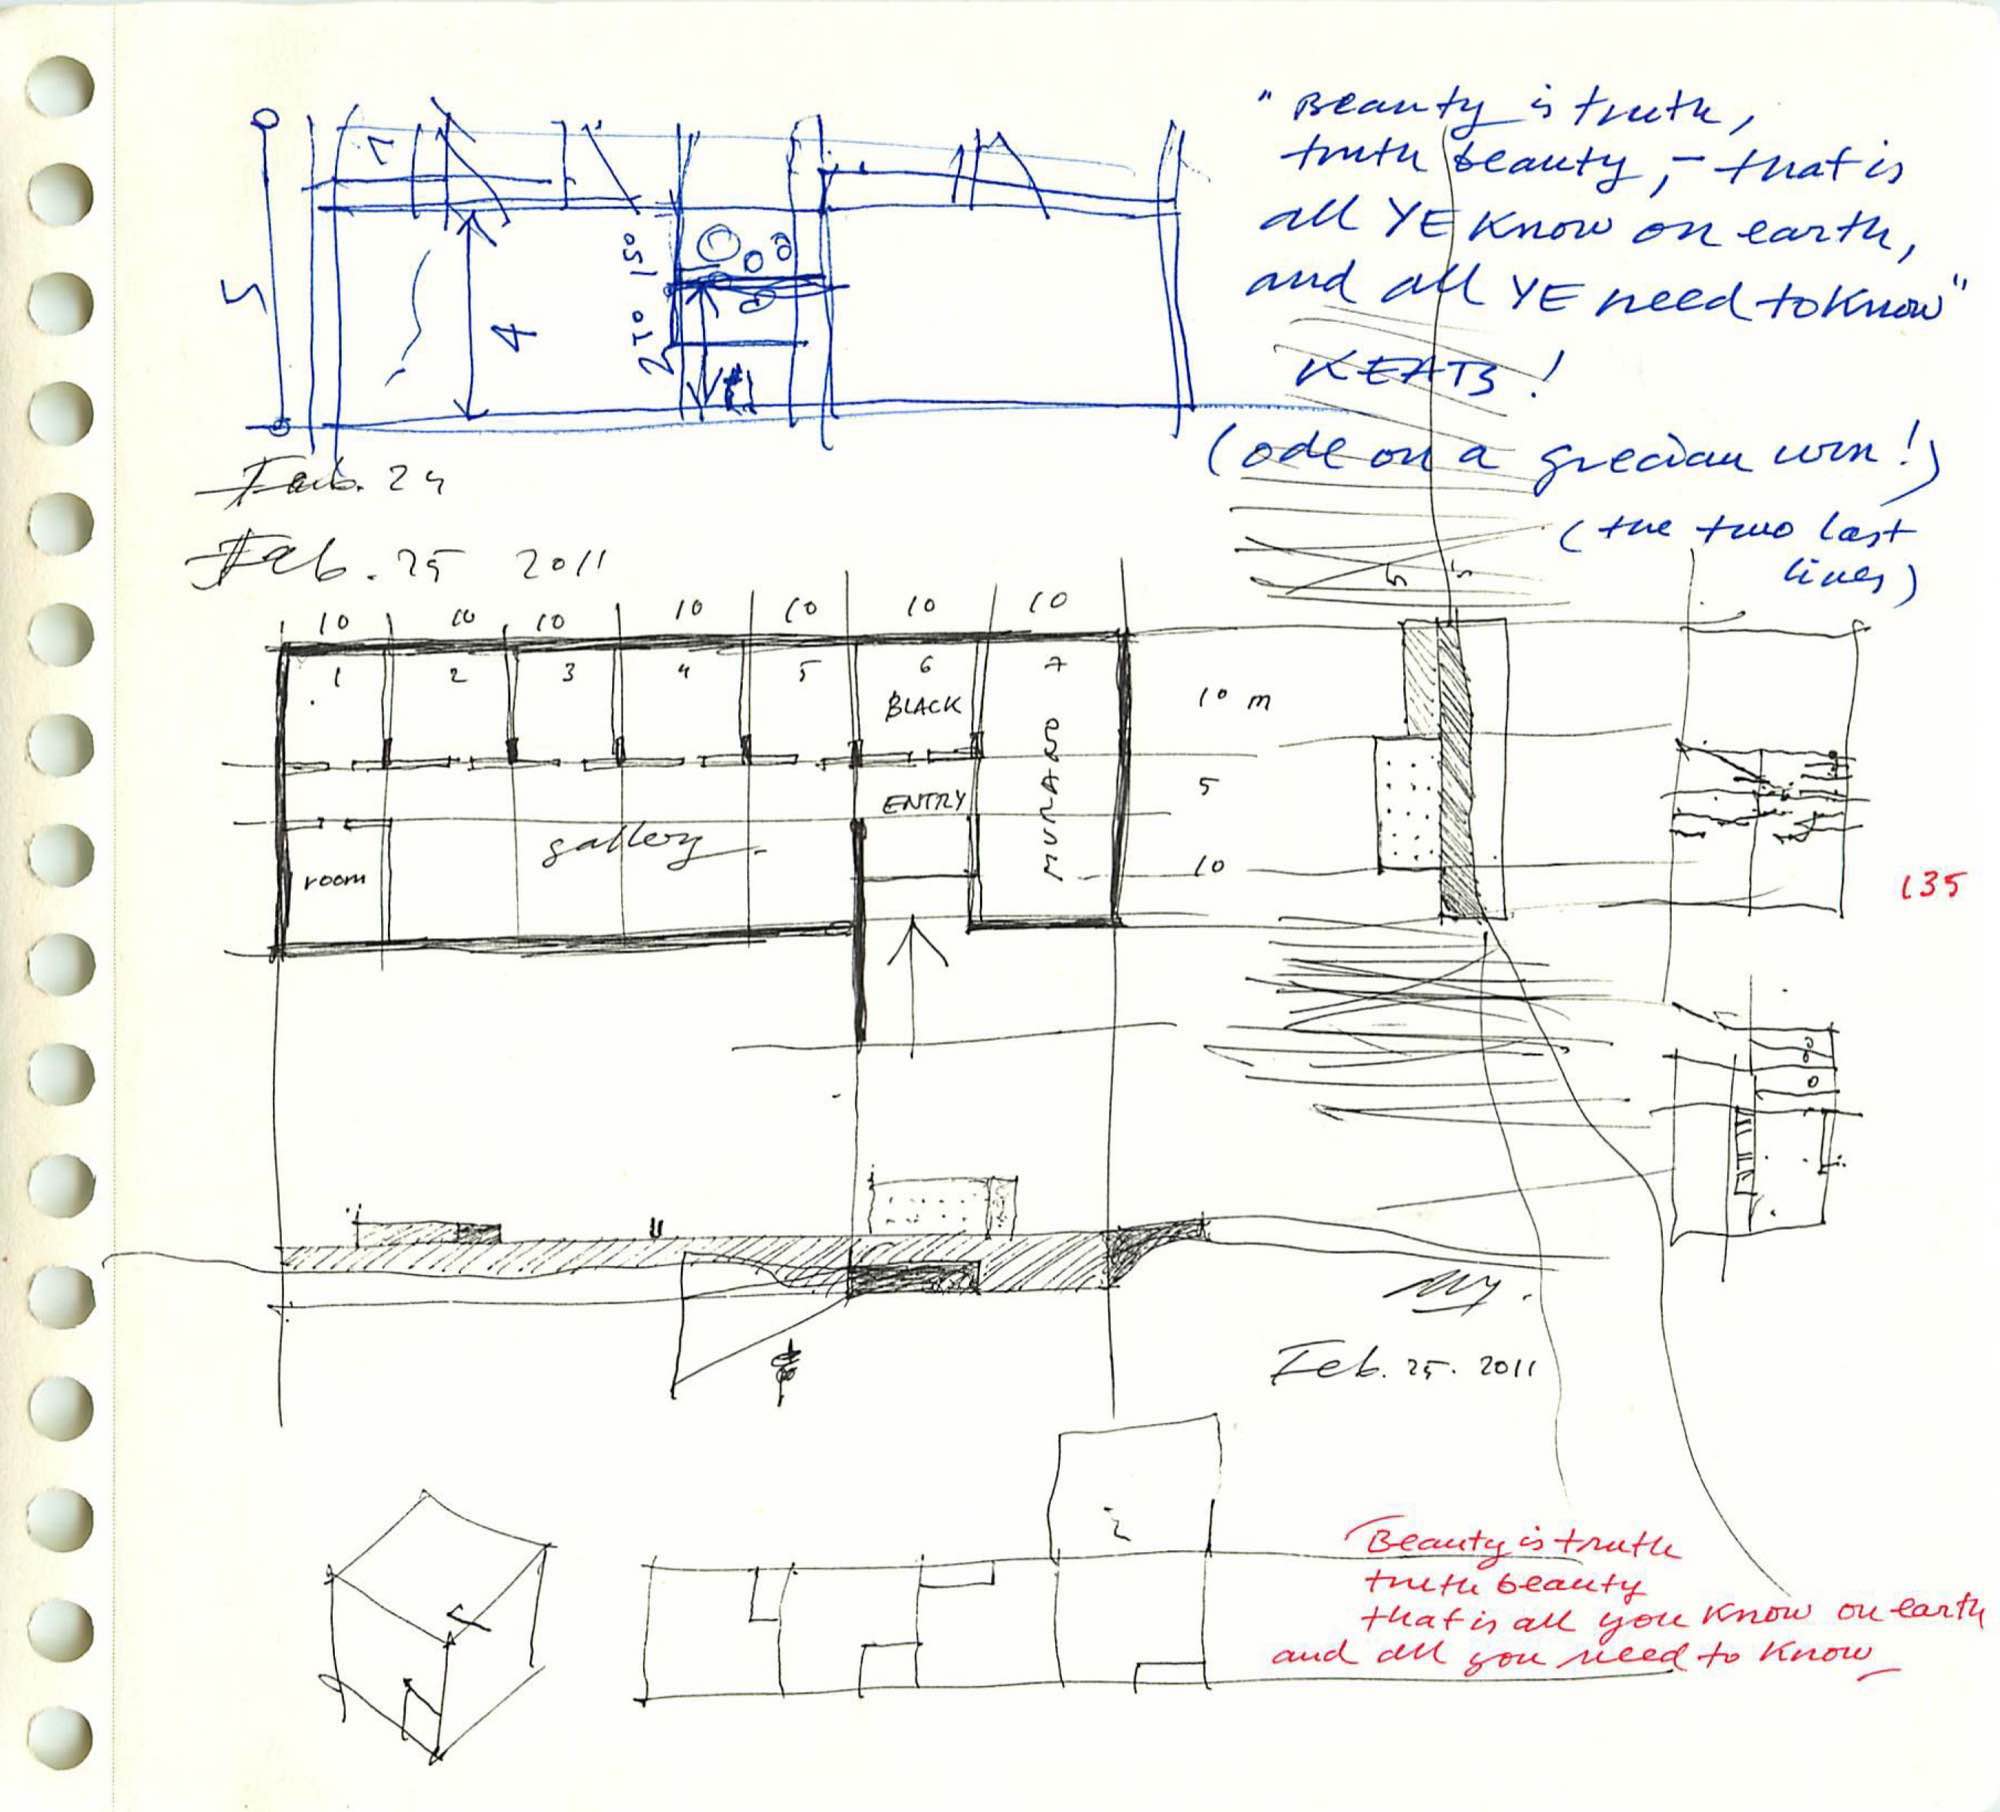 "Beauty is truth,
truth beauty, - that is
all YE know on earth,
and all YE need to know"
KEATS!
(ode on a grecian urn!)
(the two last
lines)
5
4
2 TO 150
Feb. 24
Feb. 25 2011
10 10 10 10 10 10 10
1 2 3 4 5 6 7
BLACK
MURANO
ENTRY
gallery
room
10 m
5
10
5 5
135
Feb. 25. 2011
Beauty is truth
truth beauty
that is all you know on earth
and all you need to know